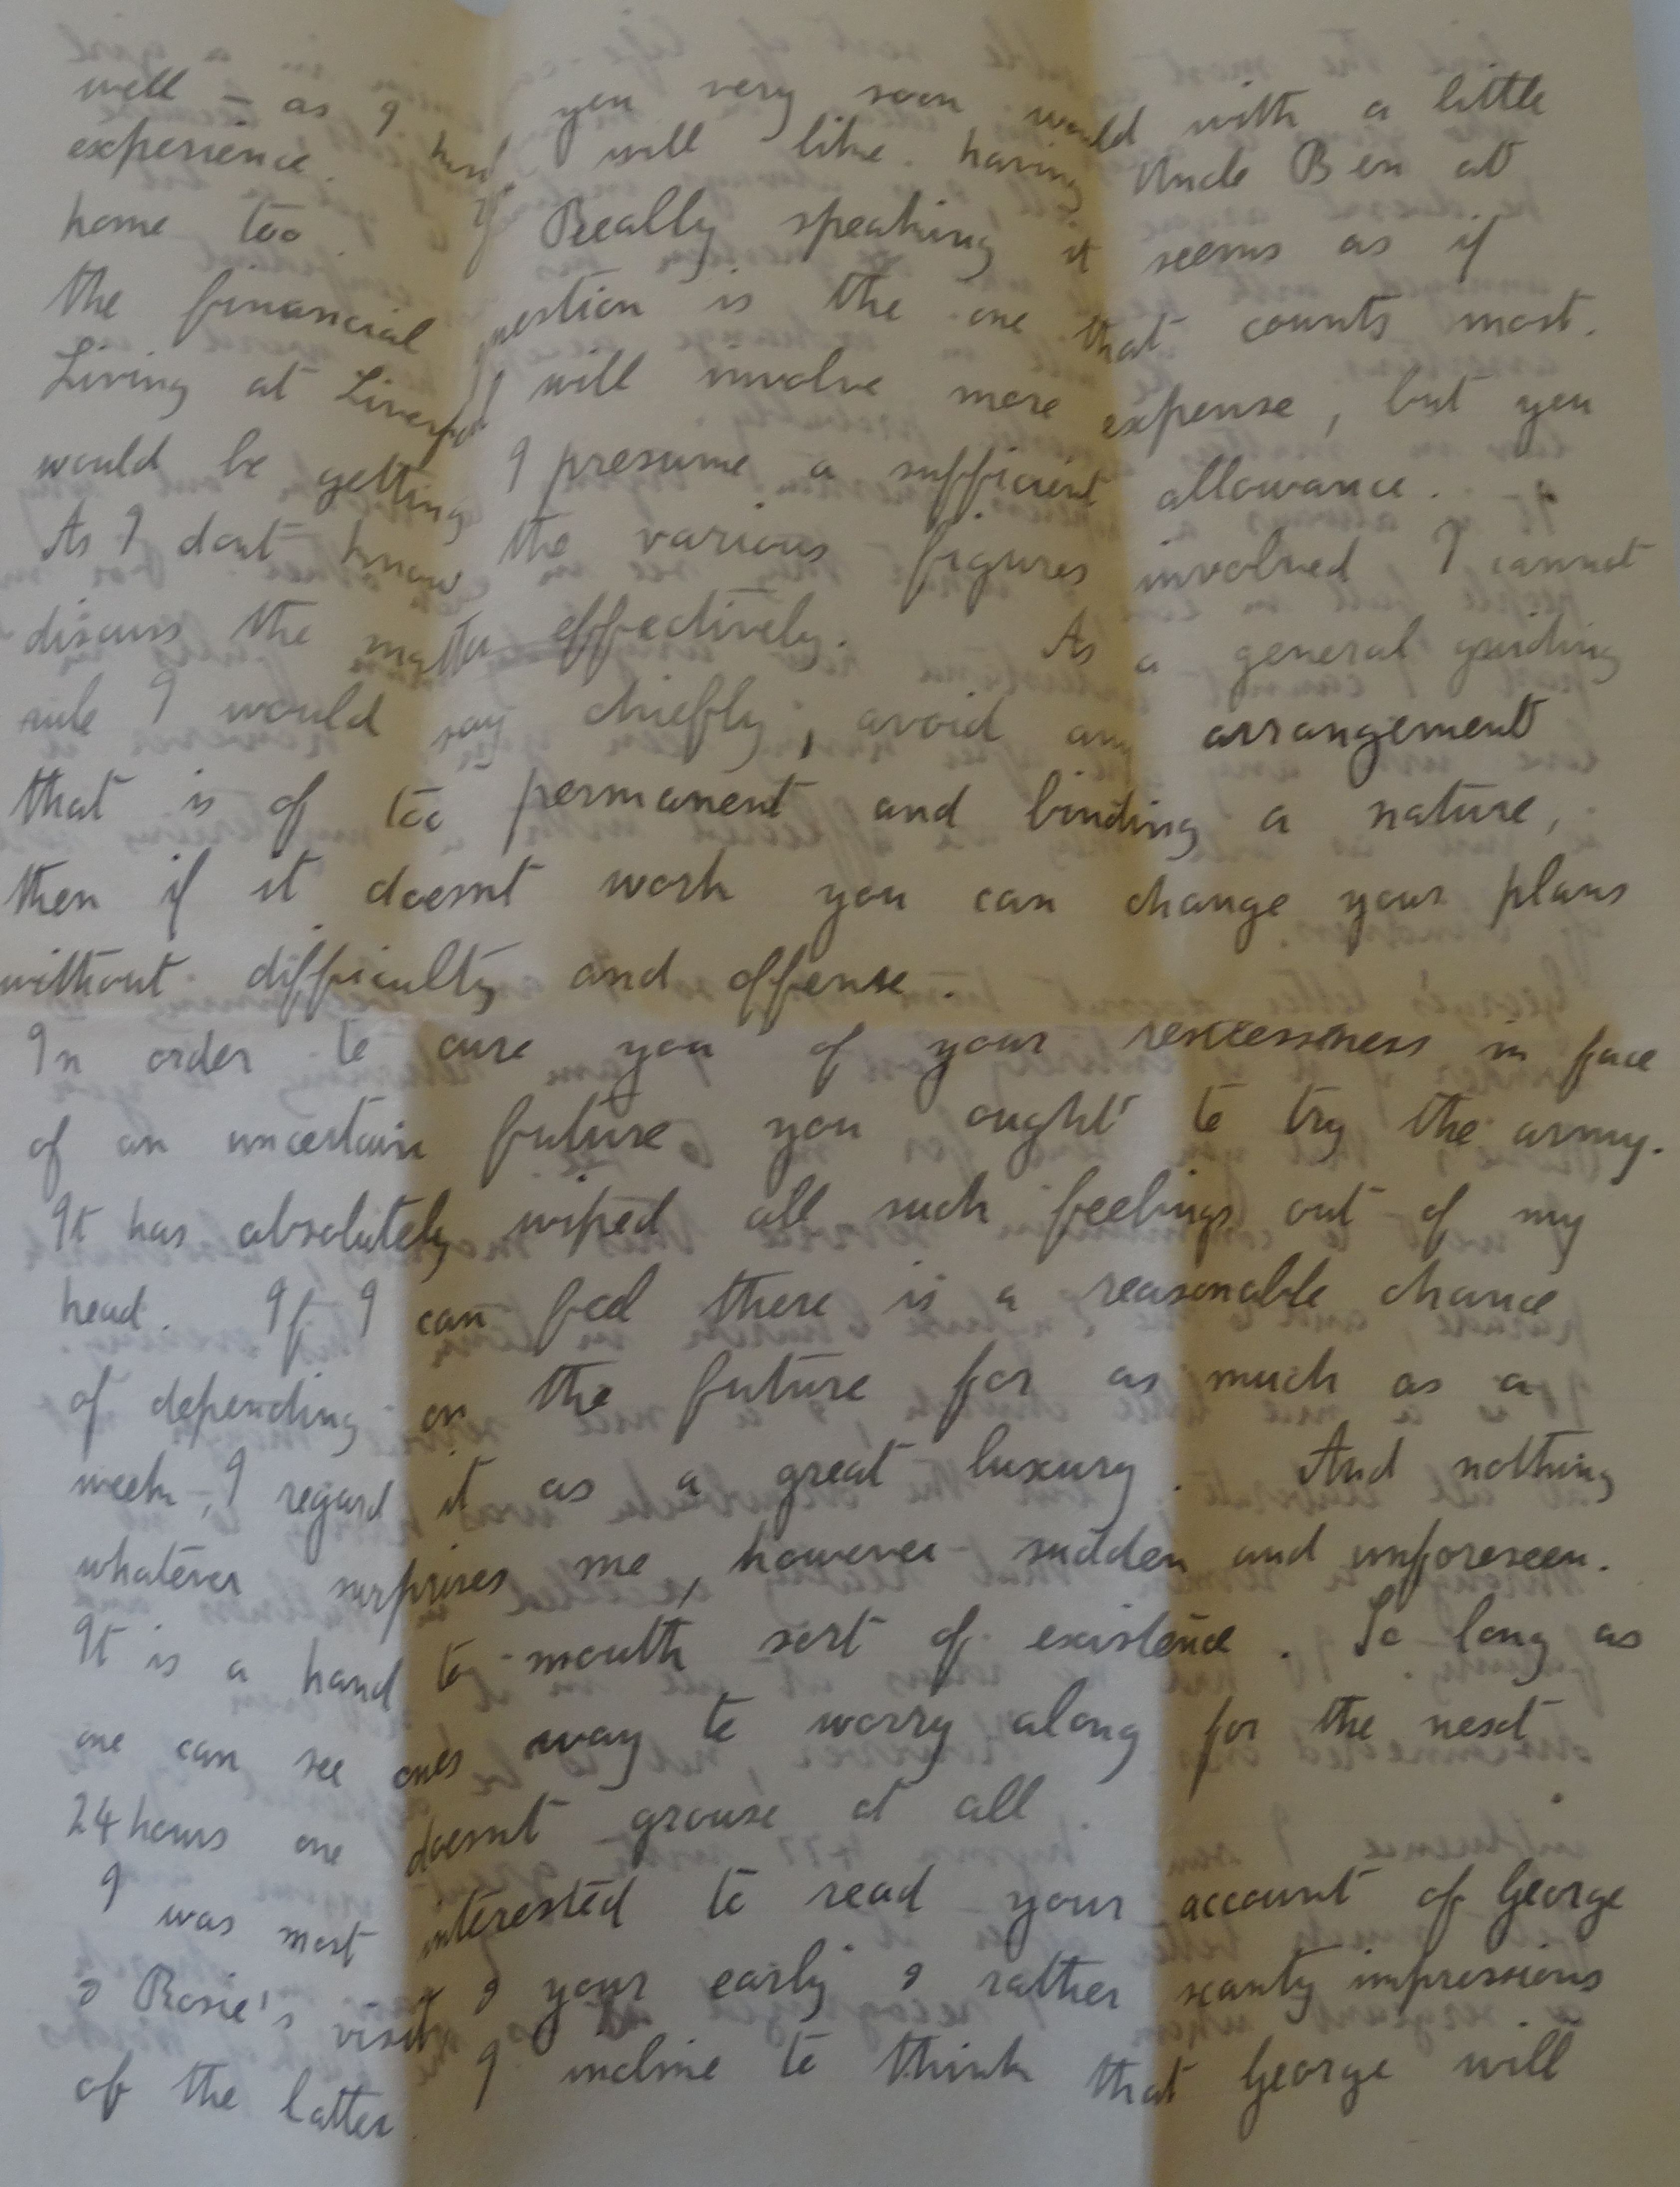 well – as I you very soon would with a little
experience. I hope will like having Uncle Ben at
home too. If Really speaking it seems as if
the financial question is the one that counts most.
Living at Liverpool will involve more expense, but you
would be getting I presume a sufficient allowance.
As I dont know the various figures involved I cannot
discuss the matter effectively. As a general guiding
rule I would say chiefly, avoid any arrangement
that is of too permanent and binding a nature,
then if it doesnt work you can change your plans
without difficulty and offense.
In order to cure you of your restlessness in face
of an uncertain future you ought to try the army.
It has absolutely wiped all such feelings out of my
head. If I can feel there is a reasonable chance
of depending on the future for as much as a
week, I regard it as a great luxury. And nothing
whatever surprises me, however sudden and unforeseen.
It is a hand to mouth sort of existence. So long as
one can see ones way to worry along for the next
24 hours one doesnt grouse at all.
I was most interested to read your account of George
& Rosie's visit & your early & rather scanty impressions
of the latter. I incline to think that George will